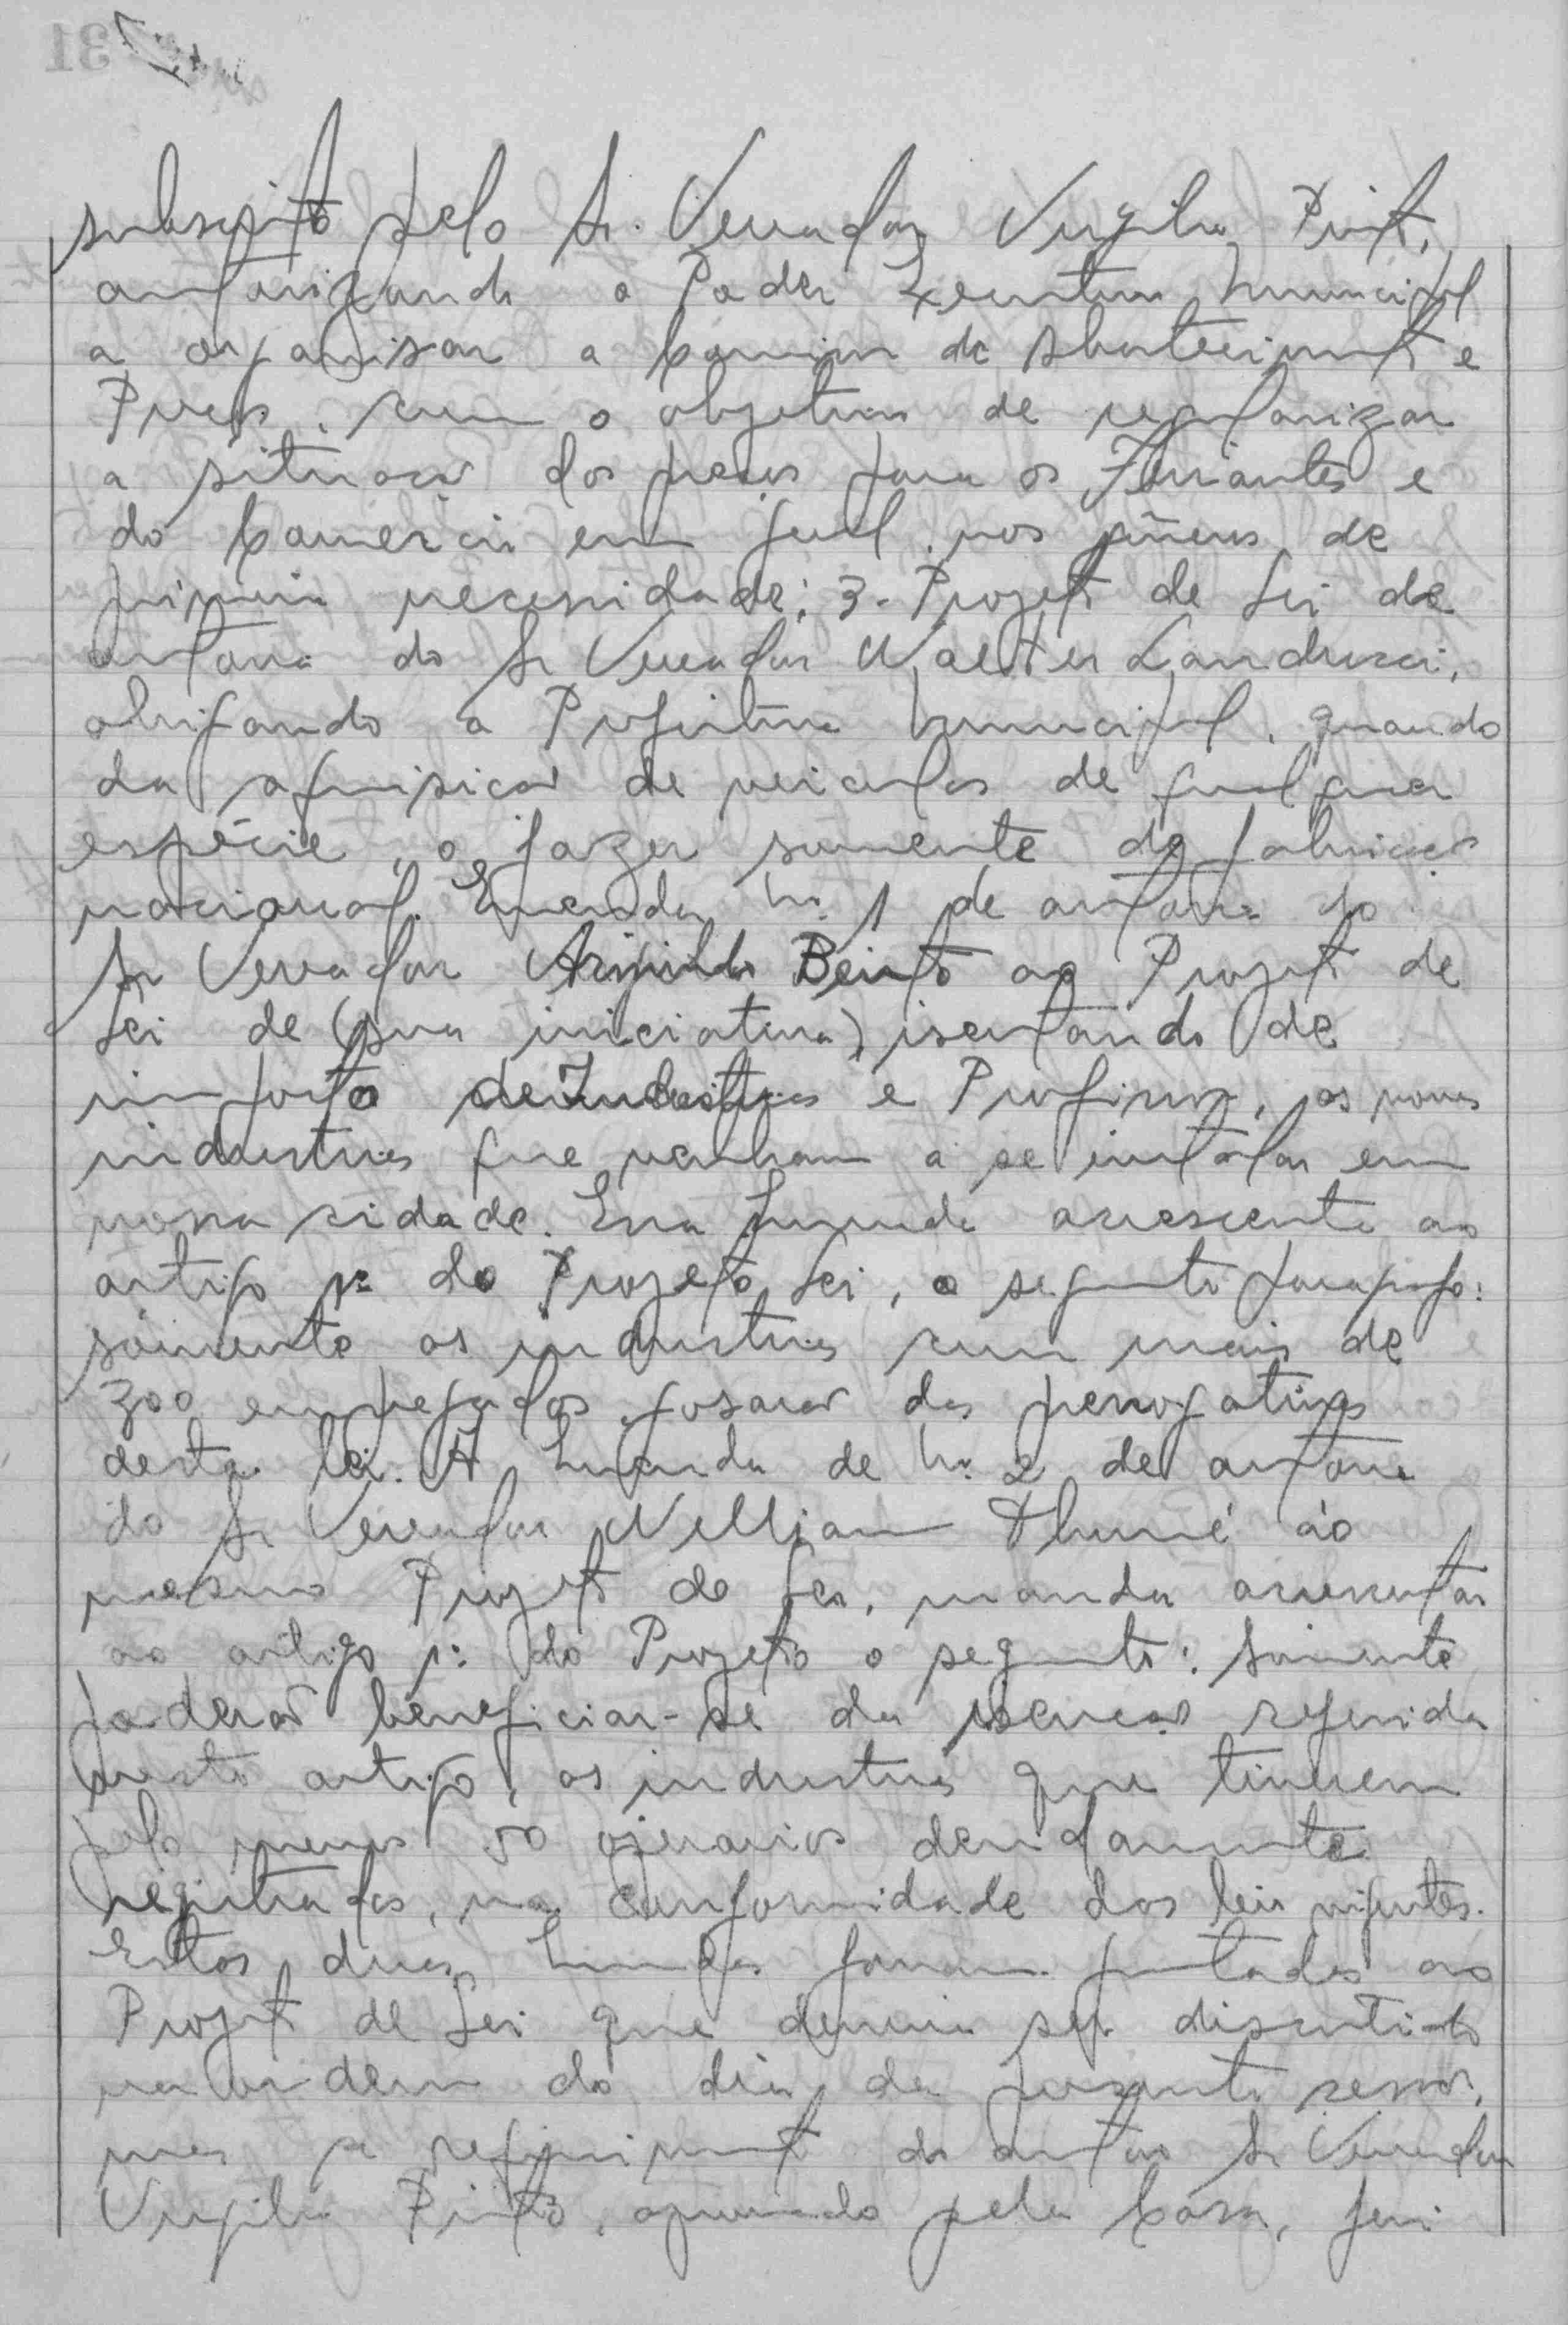 subscrito pelo Sr. Vereador Virgilio Pinto,
autorizando o Poder Executivo Municipal
a organisar a Comissão de Abastecimento e
Preços, com o objetivo de regularizar
a situação dos preços para os Feirantes e
do Comercio em geral, nos gêneros de
primeira necessidade; 3- Projeto de Lei de
autoria do Sr Vereador Walter Landucci,
obrigando a Prefeitura Municipal, quando
da aquisição de veiculos de qualquer
espécie, o fazer somente de fabricação
nacional. Emenda nº 1 de autoria do
Sr Vereador Bento ao Projeto de
Lei de (sua iniciativa), isentando de
imposto de Industrias e Profissões, as novas
industrias que venham a se instalar em
nossa cidade. Essa Emenda acrescenta ao
artigo 1º do Projeto Lei, o seguinte paragrafo:
sòmente as industrias com mais de
300 empregados gosarão das prerrogativas
desta lei. A Emenda de nº 2 de autoria
do Sr Vereador Willian Thomé ao
mesmo Projeto de Lei, manda acrescentar
ao artigo 1º do Projeto o seguinte: Sòmente
poderão beneficiar-se da isenção referida
neste artigo, as industrias que tiverem
pelo menos 50 operarios devidamente
registrados, na conformidade das leis vigentes.
Estas duas Emendas foram juntadas ao
Projeto de Lei que deveria ser discutido
na ordem do dia da presente sessão,
mas a requerimento do autor Sr Vereador
Virgilio Pinto, aprovado pela Casa,